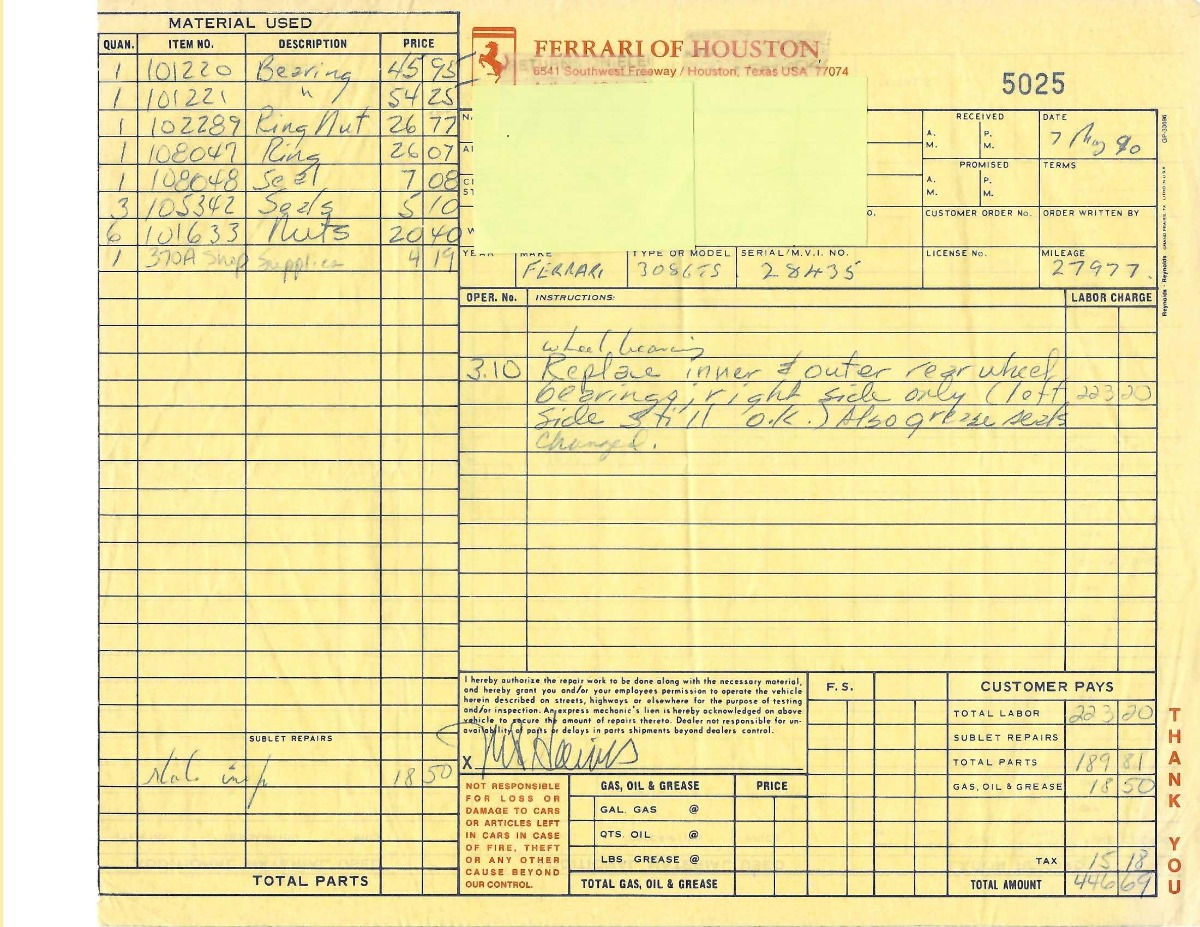 MATERIAL USED
QUAN. ITEM NO. DESCRIPTION PRICE
1 101220 Bearing 45 95
1 101221 " 54 25
1 102289 Ring Nut 26 77
1 108047 Ring 26 07
1 108048 Seal 7 08
3 105342 Seals 5 10
6 101633 Nuts 20 40
1 370A Shop Supplies 4 19
SUBLET REPAIRS
18 50
TOTAL PARTS
FERRARI OF HOUSTON
6541 Southwest Freeway / Houston, Texas USA 77074
5025
RECEIVED
A. M. P. M.
DATE
7 90
PROMISED
A. M. P. M.
TERMS
CUSTOMER ORDER No. ORDER WRITTEN BY
YEAR MAKE TYPE OR MODEL SERIAL/M.V.I. NO. LICENSE No. MILEAGE
FERRARI 308GTS 28435 27977.
OPER. No. INSTRUCTIONS: LABOR CHARGE
wheel bearing
3.10 Replace inner & outer rear wheel
bearings, right side only (left 223 20
side still o.k.) Also grease seals
changed.
I hereby authorize the repair work to be done along with the necessary material,
and hereby grant you and/or your employees permission to operate the vehicle
herein described on streets, highways or elsewhere for the purpose of testing
and/or inspection. An express mechanic's lien is hereby acknowledged on above
vehicle to secure the amount of repairs thereto. Dealer not responsible for un-
availability of parts or delays in parts shipments beyond dealers control.
X
NOT RESPONSIBLE
FOR LOSS OR
DAMAGE TO CARS
OR ARTICLES LEFT
IN CARS IN CASE
OF FIRE, THEFT
OR ANY OTHER
CAUSE BEYOND
OUR CONTROL.
GAS, OIL & GREASE PRICE
GAL. GAS @
QTS. OIL @
LBS. GREASE @
TOTAL GAS, OIL & GREASE
F.S.
CUSTOMER PAYS
TOTAL LABOR 223 20
SUBLET REPAIRS
TOTAL PARTS 189 81
GAS, OIL & GREASE 18 50
TAX 15 18
TOTAL AMOUNT 446 69
THANK YOU